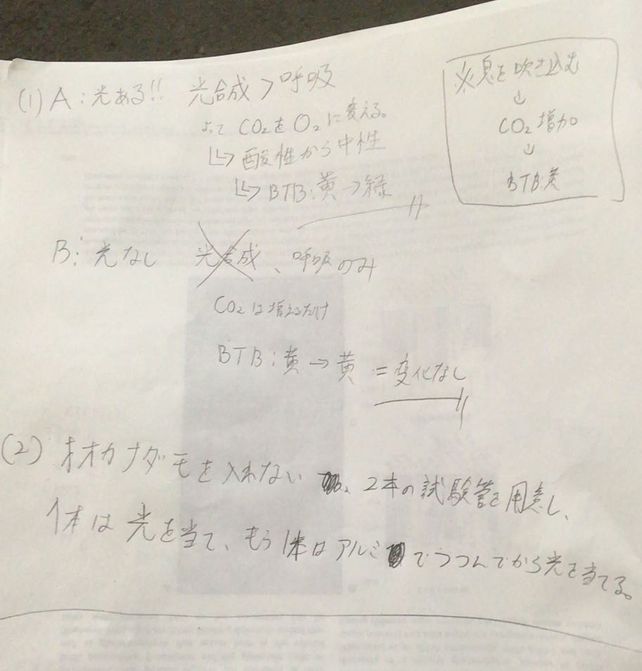 (1) A:光ある!! 光合成>呼吸
よって CO2をO2に変える。
↳酸性から中性
↳BTB:黄→緑
※息を吹き込む
↓
CO2増加
↓
BTB:黄
B:光なし 光合成、呼吸のみ
CO2は増えるだけ
BTB:黄→黄 =変化なし
(2) オオカナダモを入れない 、2本の試験管を用意し、
1本は光を当て、もう1本はアルミ でつつんでから光を当てる。